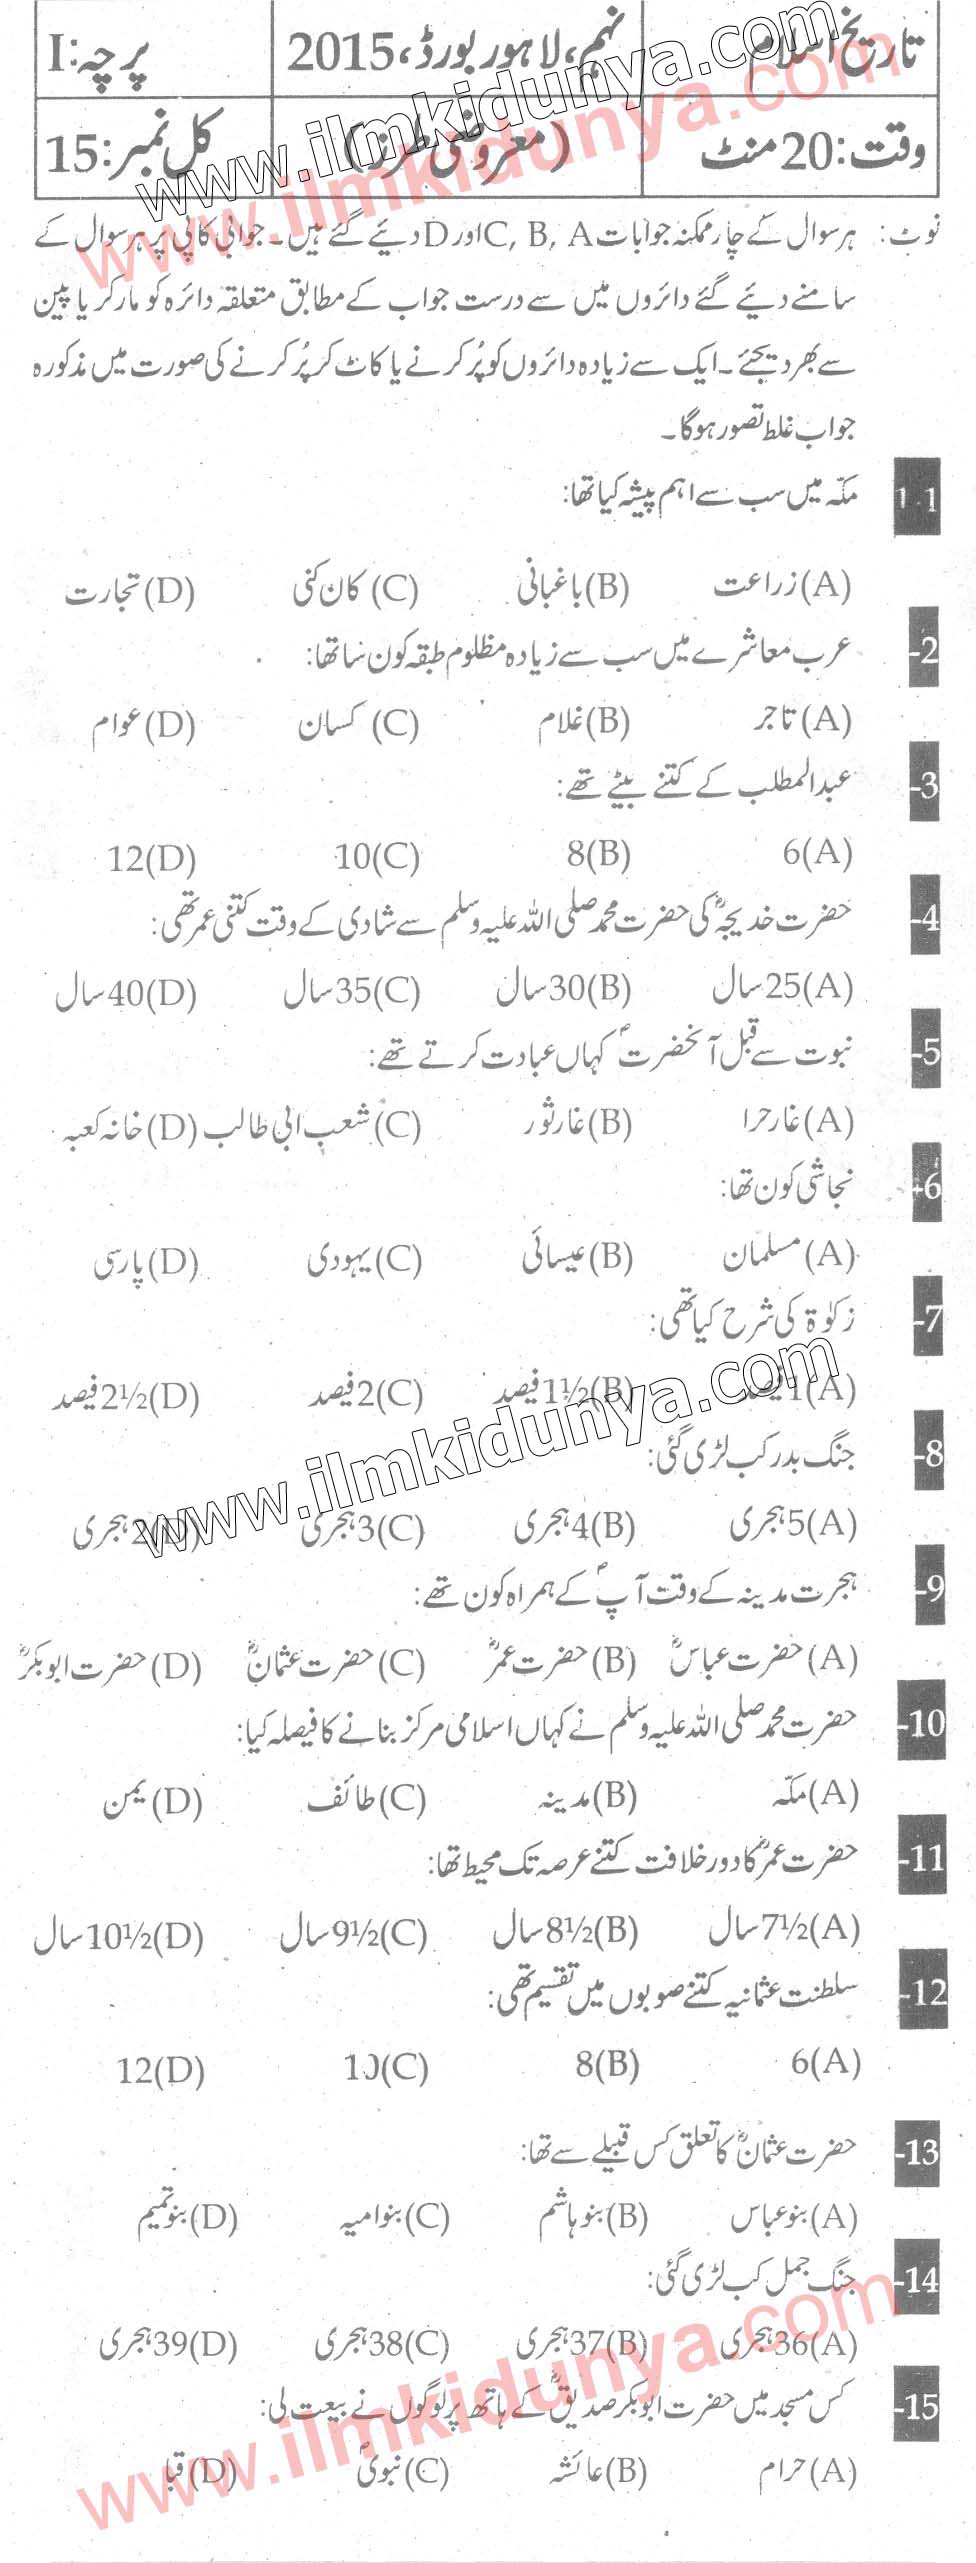 تاریخ اسلام نہم، لاہور بورڈ، 2015 پرچہ: I
وقت: 20 منٹ (معروضی طرز) کل نمبر: 15
نوٹ: ہر سوال کے چار ممکنہ جوابات C, B, A اور D دیئے گئے ہیں۔ جوابی کاپی پر ہر سوال کے
سامنے دیئے گئے دائروں میں سے درست جواب کے مطابق متعلقہ دائرہ کو مارکر یا پین
سے بھر دیجئے۔ ایک سے زیادہ دائروں کو پُر کرنے یا کاٹ کر پُر کرنے کی صورت میں مذکورہ
جواب غلط تصور ہوگا۔
1.1 مکہ میں سب سے اہم پیشہ کیا تھا:
(A) زراعت (B) باغبانی (C) کان کنی (D) تجارت
2- عرب معاشرے میں سب سے زیادہ مظلوم طبقہ کون سا تھا:
(A) تاجر (B) غلام (C) کسان (D) عوام
3- عبدالمطلب کے کتنے بیٹے تھے:
(A) 6 (B) 8 (C) 10 (D) 12
4- حضرت خدیجہؓ کی حضرت محمد صلی اللہ علیہ وسلم سے شادی کے وقت کتنی عمر تھی:
(A) 25 سال (B) 30 سال (C) 35 سال (D) 40 سال
5- نبوت سے قبل آنحضرتؐ کہاں عبادت کرتے تھے:
(A) غار حرا (B) غار ثور (C) شعب ابی طالب (D) خانہ کعبہ
6- نجاشی کون تھا:
(A) مسلمان (B) عیسائی (C) یہودی (D) پارسی
7- زکوٰۃ کی شرح کیا تھی:
(A) 1 فیصد (B) 1½ فیصد (C) 2 فیصد (D) 2½ فیصد
8- جنگ بدر کب لڑی گئی:
(A) 5 ہجری (B) 4 ہجری (C) 3 ہجری (D) 2 ہجری
9- ہجرت مدینہ کے وقت آپؐ کے ہمراہ کون تھے:
(A) حضرت عباسؓ (B) حضرت عمرؓ (C) حضرت عثمانؓ (D) حضرت ابوبکرؓ
10- حضرت محمد صلی اللہ علیہ وسلم نے کہاں اسلامی مرکز بنانے کا فیصلہ کیا:
(A) مکہ (B) مدینہ (C) طائف (D) یمن
11- حضرت عمرؓ کا دور خلافت کتنے عرصہ تک محیط تھا:
(A) 7½ سال (B) 8½ سال (C) 9½ سال (D) 10½ سال
12- سلطنت عثمانیہ کتنے صوبوں میں تقسیم تھی:
(A) 6 (B) 8 (C) 10 (D) 12
13- حضرت عثمانؓ کا تعلق کس قبیلے سے تھا:
(A) بنو عباس (B) بنو ہاشم (C) بنو امیہ (D) بنو تمیم
14- جنگ جمل کب لڑی گئی:
(A) 36 ہجری (B) 37 ہجری (C) 38 ہجری (D) 39 ہجری
15- کس مسجد میں حضرت ابوبکر صدیقؓ کے ہاتھ پر لوگوں نے بیعت لی:
(A) حرام (B) عائشہ (C) نبویؐ (D) قبا
www.ilmkidunya.com
www.ilmkidunya.com
www.ilmkidunya.com
www.ilmkidunya.com